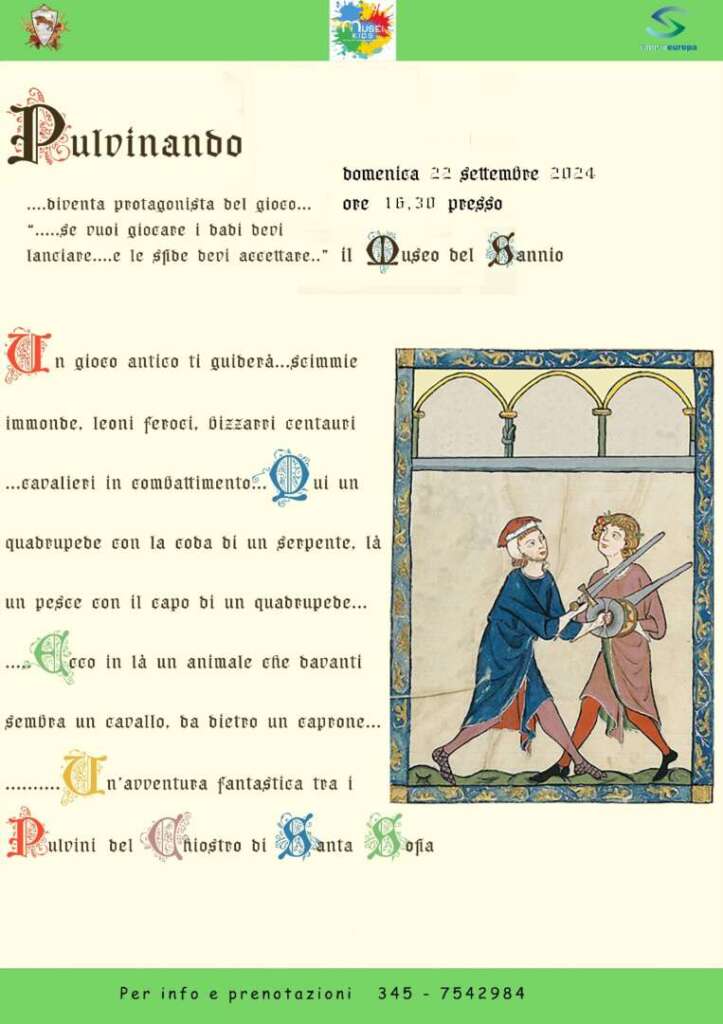 MUSEI
KIDS
europa
Pulvinando
domenica 22 settembre 2024
ore 16,30 presso
il Museo del Sannio
....diventa protagonista del gioco...
“.....se vuoi giocare i dadi devi
lanciare....e le sfide devi accettare..”
Un gioco antico ti guiderà...scimmie
immonde, leoni feroci, bizzarri centauri
...cavalieri in combattimento... Qui un
quadrupede con la coda di un serpente, là
un pesce con il capo di un quadrupede...
.... Ecco in là un animale che davanti
sembra un cavallo, da dietro un caprone...
.......... Un'avventura fantastica tra i
Pulvini del Chiostro di Santa Sofia
Per info e prenotazioni 345 - 7542984